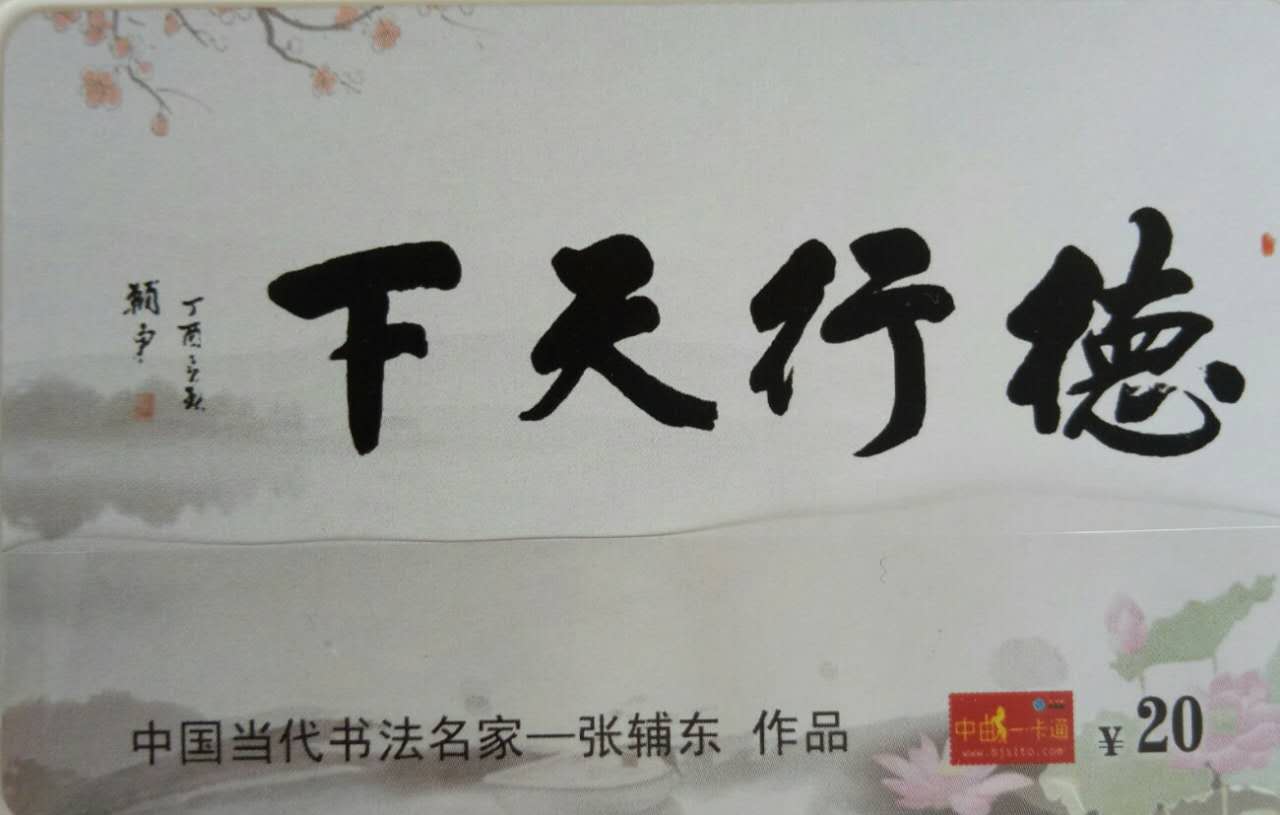 德行天下
丁酉立秋
辅東
中国当代书法名家—张辅东 作品
中由一卡通
www.bjsito.com
¥20